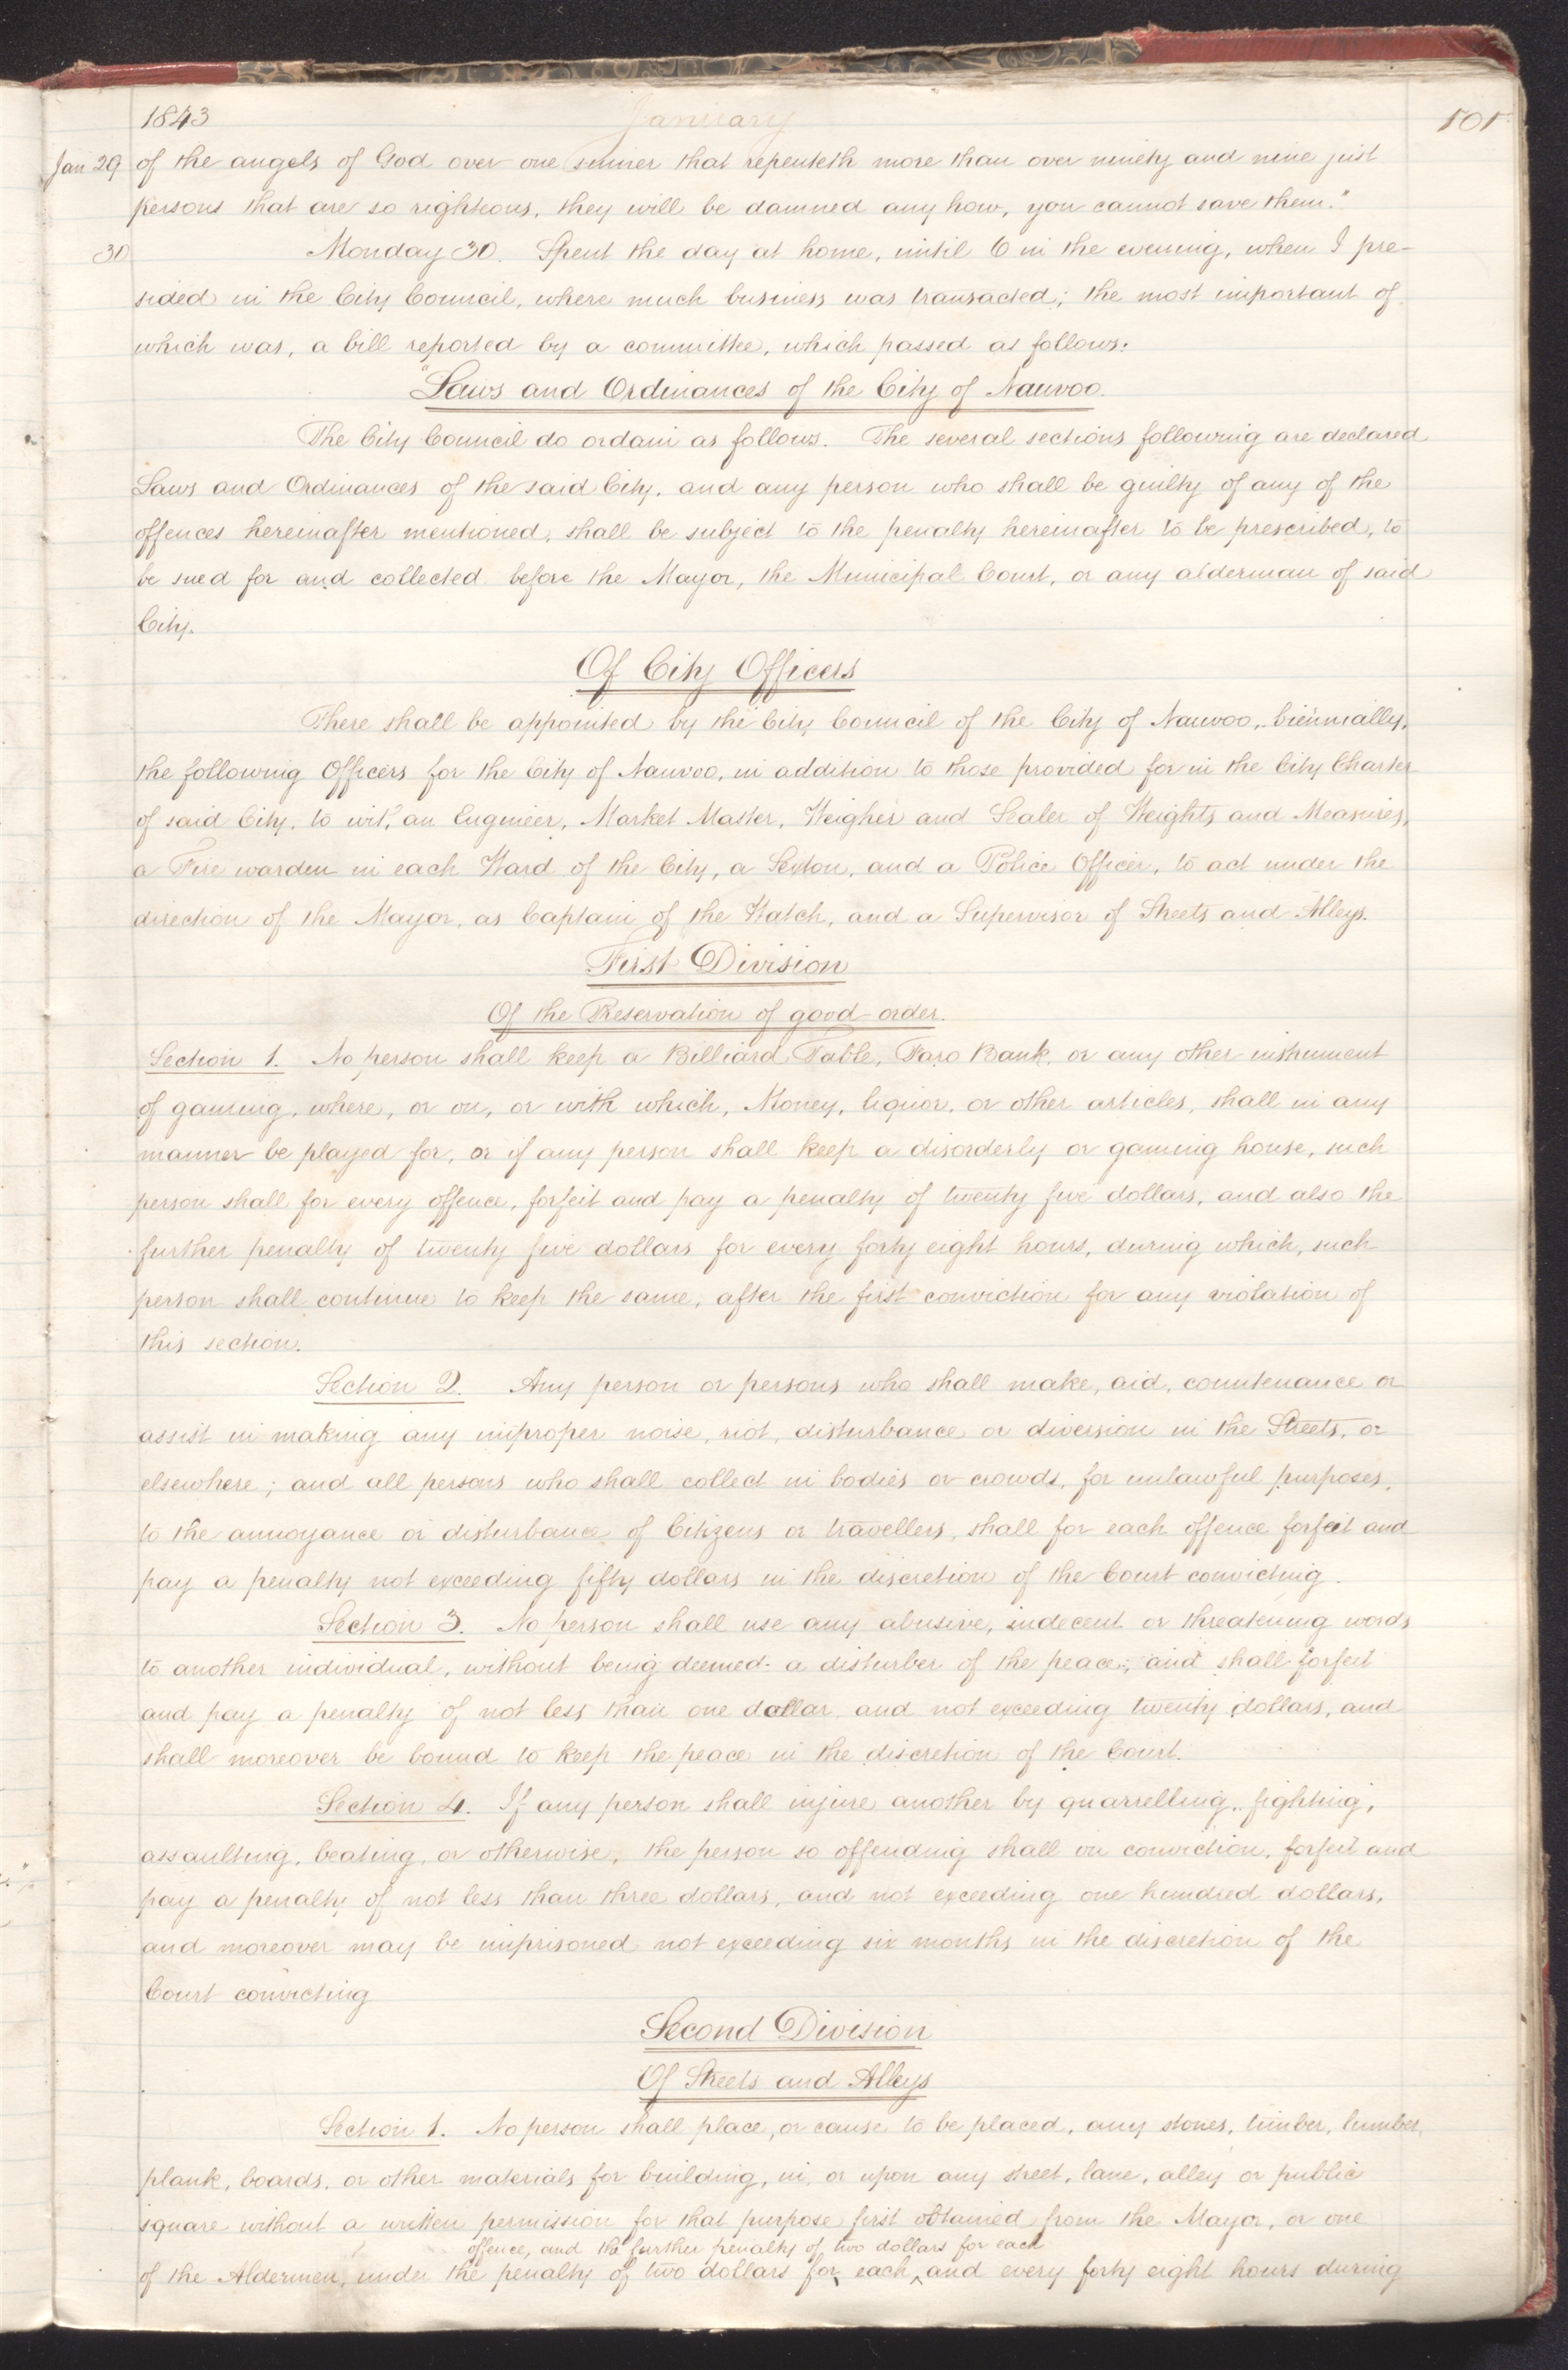 1843 January 101
Jan 29 of the angels of God over one sinner that repenteth more than over ninety and nine just
persons that are so righteous, they will be damned any how, you cannot save them."
30 Monday 30. Spent the day at home, until 6 in the evening, when I pre-
sided in the City Council, where much business was transacted; the most important of
which was, a bill reported by a committee, which passed as follows:
"Laws and Ordinances of the City of Nauvoo.
The City Council do ordain as follows. The several sections following are declared
Laws and Ordinances of the said City, and any person who shall be guilty of any of the
offences hereinafter mentioned, shall be subject to the penalty hereinafter to be prescribed, to
be sued for and collected before the Mayor, the Municipal Court, or any alderman of said
City.
Of City Officers
There shall be appointed by the City Council of the City of Nauvoo, biennially,
the following Officers for the City of Nauvoo, in addition to those provided for in the City Charter
of said City, to wit, an Engineer, Market Master, Weigher and Sealer of Weights and Measures,
a Fire warden in each Ward of the City, a Sexton, and a Police Officer, to act under the
direction of the Mayor, as Captain of the Watch, and a Supervisor of Streets and Alleys.
First Division
Of the Preservation of good order.
Section 1. No person shall keep a Billiard Table, Faro Bank, or any other instrument
of gaming, where, or on, or with which, Money, liquor, or other articles, shall in any
manner be played for, or if any person shall keep a disorderly or gaming house, such
person shall for every offence, forfeit and pay a penalty of twenty five dollars, and also the
further penalty of twenty five dollars for every forty eight hours, during which, such
person shall continue to keep the same, after the first conviction for any violation of
this section.
Section 2. Any person or persons who shall make, aid, countenance or
assist in making any improper noise, riot, disturbance or diversion in the Streets, or
elsewhere; and all persons who shall collect in bodies or crowds, for unlawful purposes,
to the annoyance or disturbance of Citizens or travellers, shall for each offence forfeit and
pay a penalty not exceeding fifty dollars in the discretion of the Court convicting.
Section 3. No person shall use any abusive, indecent or threatening words
to another individual, without being deemed a disturber of the peace, and shall forfeit
and pay a penalty of not less than one dollar, and not exceeding twenty dollars, and
shall moreover be bound to keep the peace in the discretion of the Court.
Section 4. If any person shall injure another by quarrelling, fighting,
assaulting, beating, or otherwise, the person so offending shall on conviction, forfeit and
pay a penalty of not less than three dollars, and not exceeding one hundred dollars,
and moreover may be imprisoned not exceeding six months in the discretion of the
Court convicting
Second Division
Of Streets and Alleys
Section 1. No person shall place, or cause to be placed, any stones, timber, lumber,
plank, boards, or other materials for building, in, or upon any street, lane, alley or public
square without a written permission for that purpose first obtained from the Mayor, or one
offence, and the further penalty of two dollars for each
of the Aldermen, under the penalty of two dollars for each and every forty eight hours during